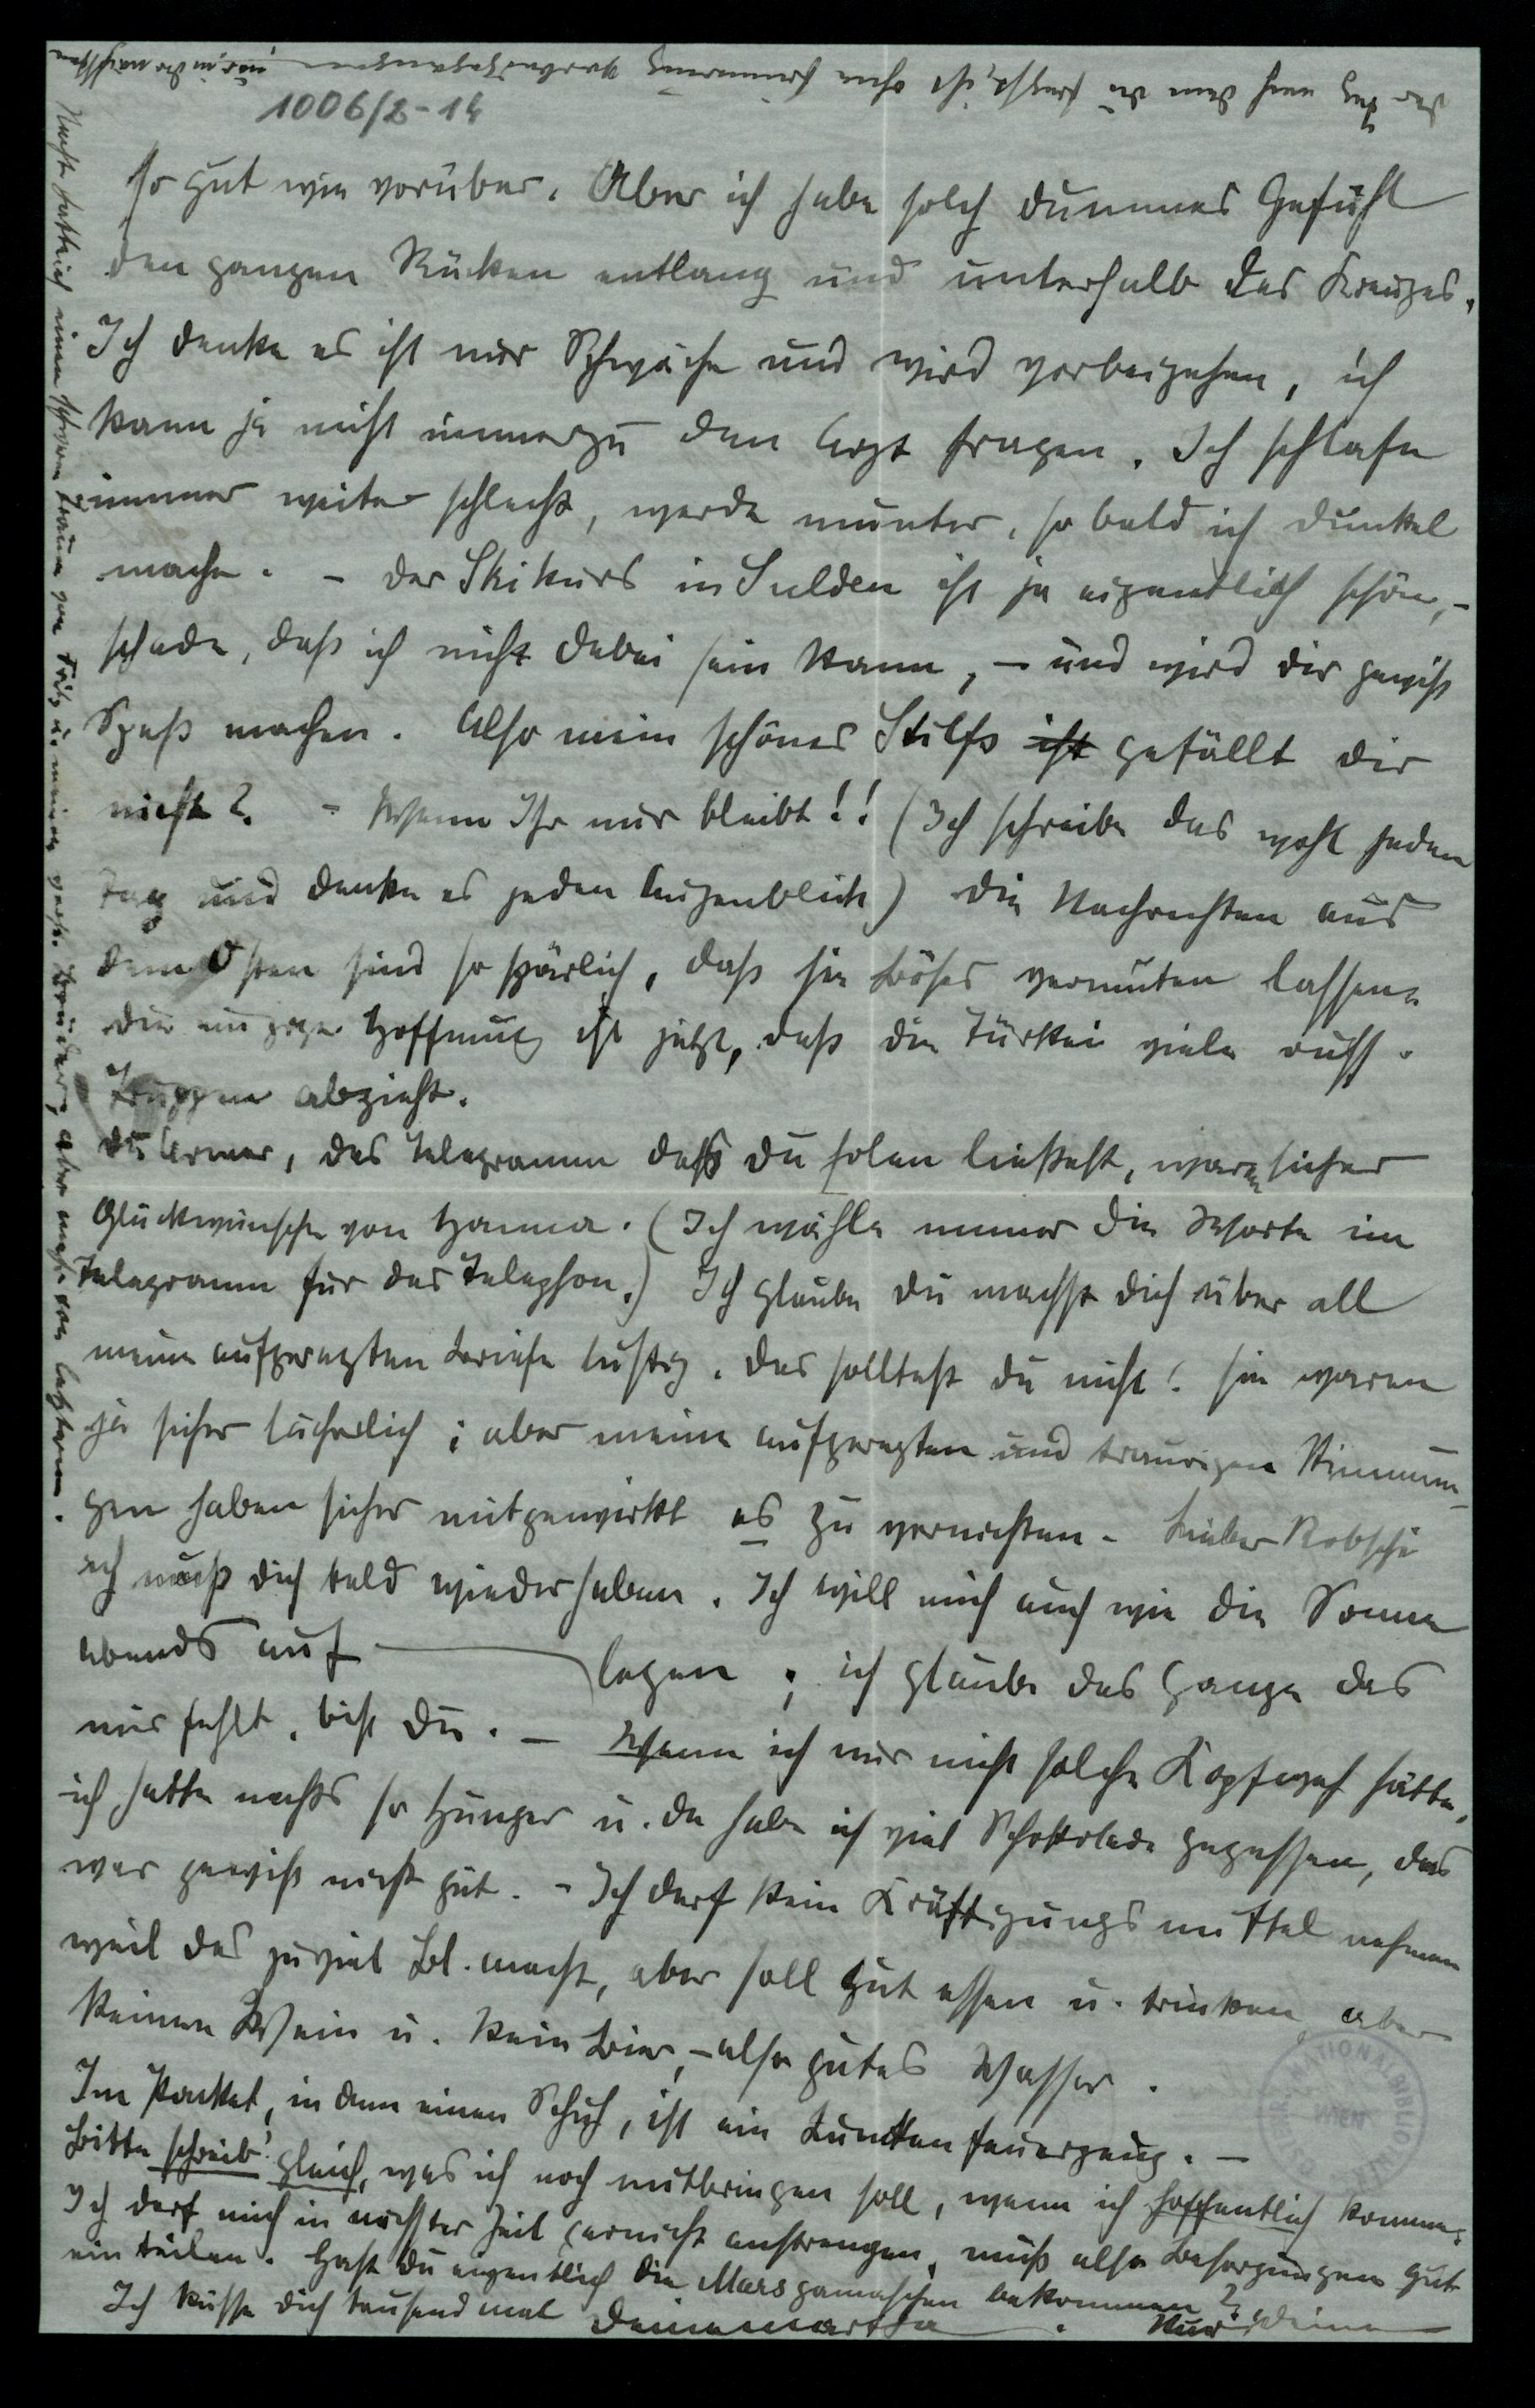 der Tag nach dem du fragst, ist ohne Erinnerung vorbeigegangen
1006/2-14
so gut wie vorüber. Aber ich habe solch dummes Gefühl
den ganzen Rücken entlang und unterhalb des Kreuzes.
Ich denke es ist nur Schwäche und wird vorbeigehen, ich
kann ja nicht immerzu den Arzt fragen. Ich schlafe
immer weiter schlecht, werde munter, so bald ich dunkel
mache. - Der Skikurs in Sulden ist ja eigentlich schön, -
schade, daß ich nicht dabei sein kann, - und wird dir gewiß
Spaß machen. Also mein schönes Stilfs ist gefällt dir
nicht? - Wenn Ihr nur bleibt!! (Ich schreibe das wohl jeden
Tag und denke es jeden Augenblick) Die Nachrichten aus
dem Osten sind so spärlich, daß sie Böses vermuten lassen.
Die einzige Hoffnung ist jetzt, daß die Türkei viele russ.
Truppen abzieht.
Du Armer, das Telegramm daß du holen ließest, waren sicher
Glückwünsche von Hanna. (Ich wähle immer die Worte im
Telegramm für das Telephon.) Ich glaube du machst dich über all
meine aufgeregten Briefe lustig. Das solltest du nicht! Sie waren
ja sicher lächerlich; aber meine aufgeregten und traurigen Stimmun-
gen haben sicher mitgewirkt es zu vernichten. Lieber Robschi
ich muß dich bald wieder haben. Ich will mich auch wie die Sonne
abends auf legen; ich glaube das Ganze das
mir fehlt, bist du. - Wenn ich nur nicht solche Kopfweh hätte,
ich hatte nachts so Hunger u. da habe ich viel Schokolade gegessen, das
war gewiß nicht gut. - Ich darf kein Kräftigungsmittel nehmen
weil das zuviel Bl. macht, aber soll gut essen u. trinken, aber
keinen Wein u. kein Bier, - also gutes Wasser.
Im Packet, in dem einen Schuh, ist ein Luntenfeuerzeug. -
Bitte schreib' gleich, was ich noch mitbringen soll, wenn ich hoffentlich komme.
Ich darf mich in nächster Zeit garnicht anstrengen, muß also Besorgungen gut
einteilen. Hast du eigentlich die Marsgamaschen bekommen?
Ich küsse dich tausend mal Deine Martha. Nur Deine
Nachts hatte ich einen schweren Traum von Fritz u. meinem verst. Bruder, aber mehr von letzterem.
NATIONALBIBLIOTHEK
WIEN